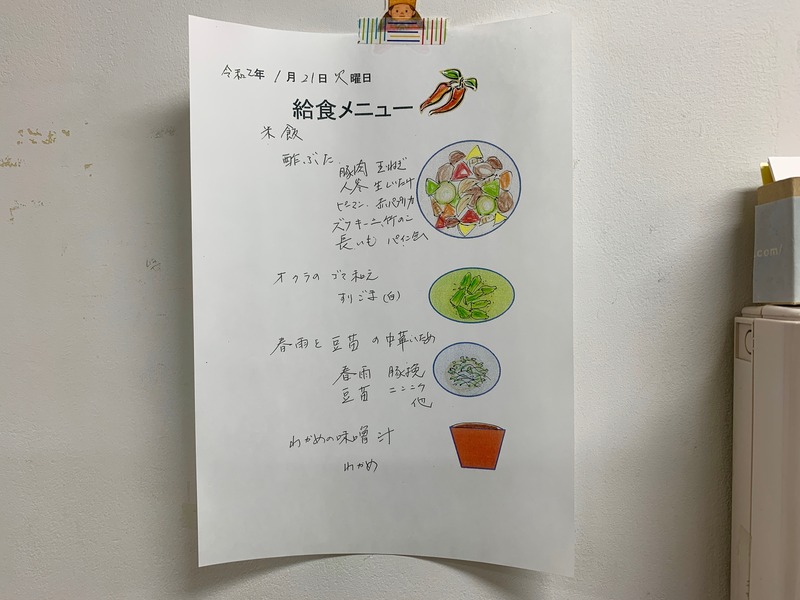 令和2年 1月21日 火曜日
給食メニュー
米飯
酢ぶた
豚肉 玉ねぎ
人参 生しいたけ
ピーマン、赤パプリカ
ズッキーニ、竹のこ
長いも パイン缶
オクラのゴマ和え
すりごま(白)
春雨と豆苗の中華いため
春雨 豚挽
豆苗 ニンニク
他
わかめの味噌汁
わかめ
.com/